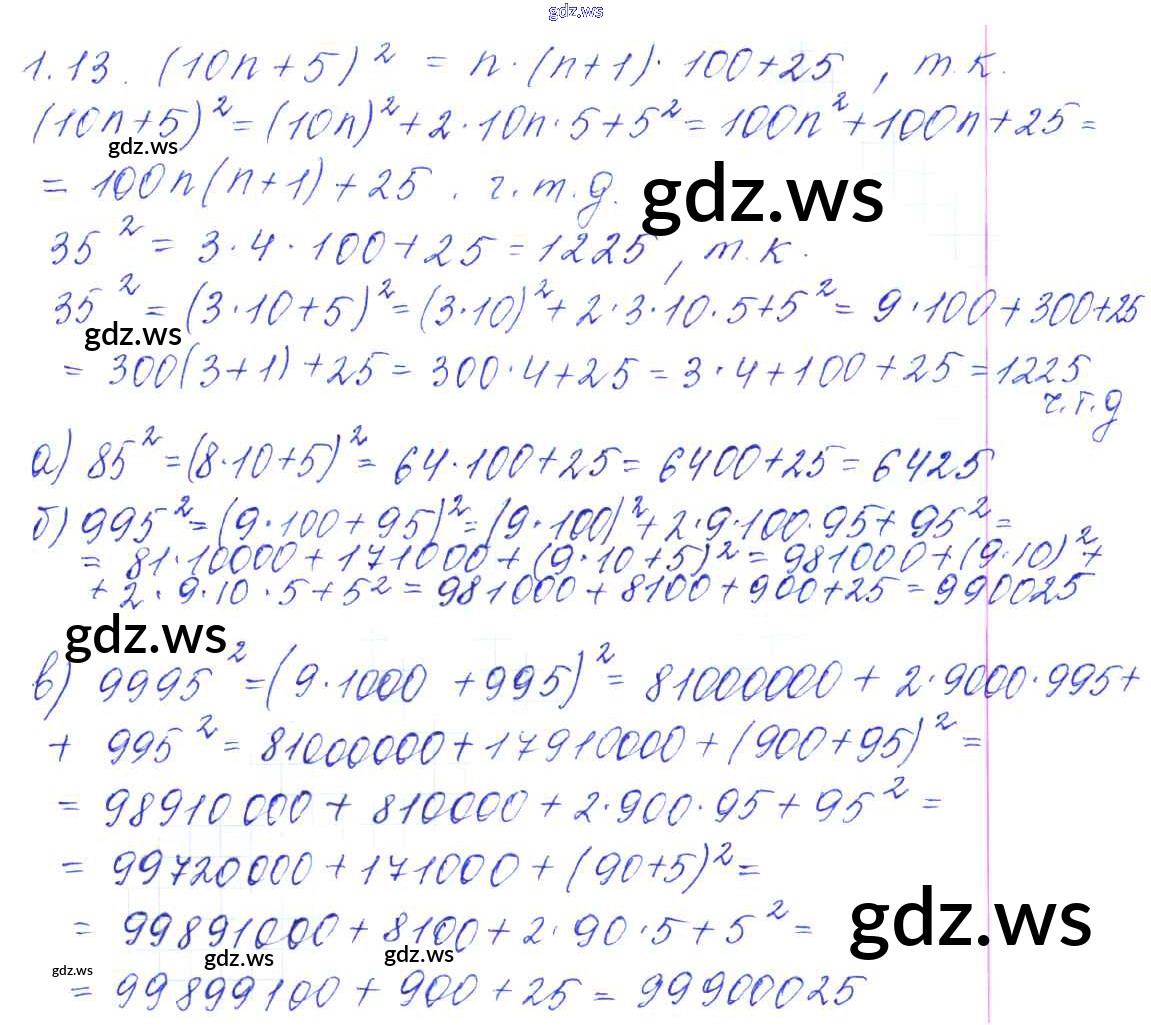 gdz.ws
1.13. (10n+5)² = n·(n+1)·100+25, т.к.
(10n+5)² = (10n)² + 2·10n·5+5² = 100n² + 100n + 25 =
gdz.ws
= 100n(n+1) + 25. ч.т.д.
gdz.ws
35² = 3·4·100+25 = 1225, т.к.
35² = (3·10+5)² = (3·10)² + 2·3·10·5+5² = 9·100+300+25
gdz.ws
= 300(3+1)+25 = 300·4+25 = 3·4+100+25 = 1225
ч.т.д
а) 85² = (8·10+5)² = 64·100+25 = 6400+25 = 6425
б) 995² = (9·100+95)² = (9·100)² + 2·9·100·95+95² =
= 81·10000+171000+(9·10+5)² = 981000+(9·10)² +
+ 2·9·10·5+5² = 981000+8100+900+25 = 990025
gdz.ws
в) 9995² = (9·1000 +995)² = 81000000 + 2·9000·995+
+ 995² = 81000000+17910000+(900+95)² =
= 98910000+810000+2·900·95+95² =
= 99720000+171000+(90+5)² =
= 99891000+8100+2·90·5+5² =
gdz.ws
gdz.ws
gdz.ws
gdz.ws
= 99899100+900+25 = 99900025